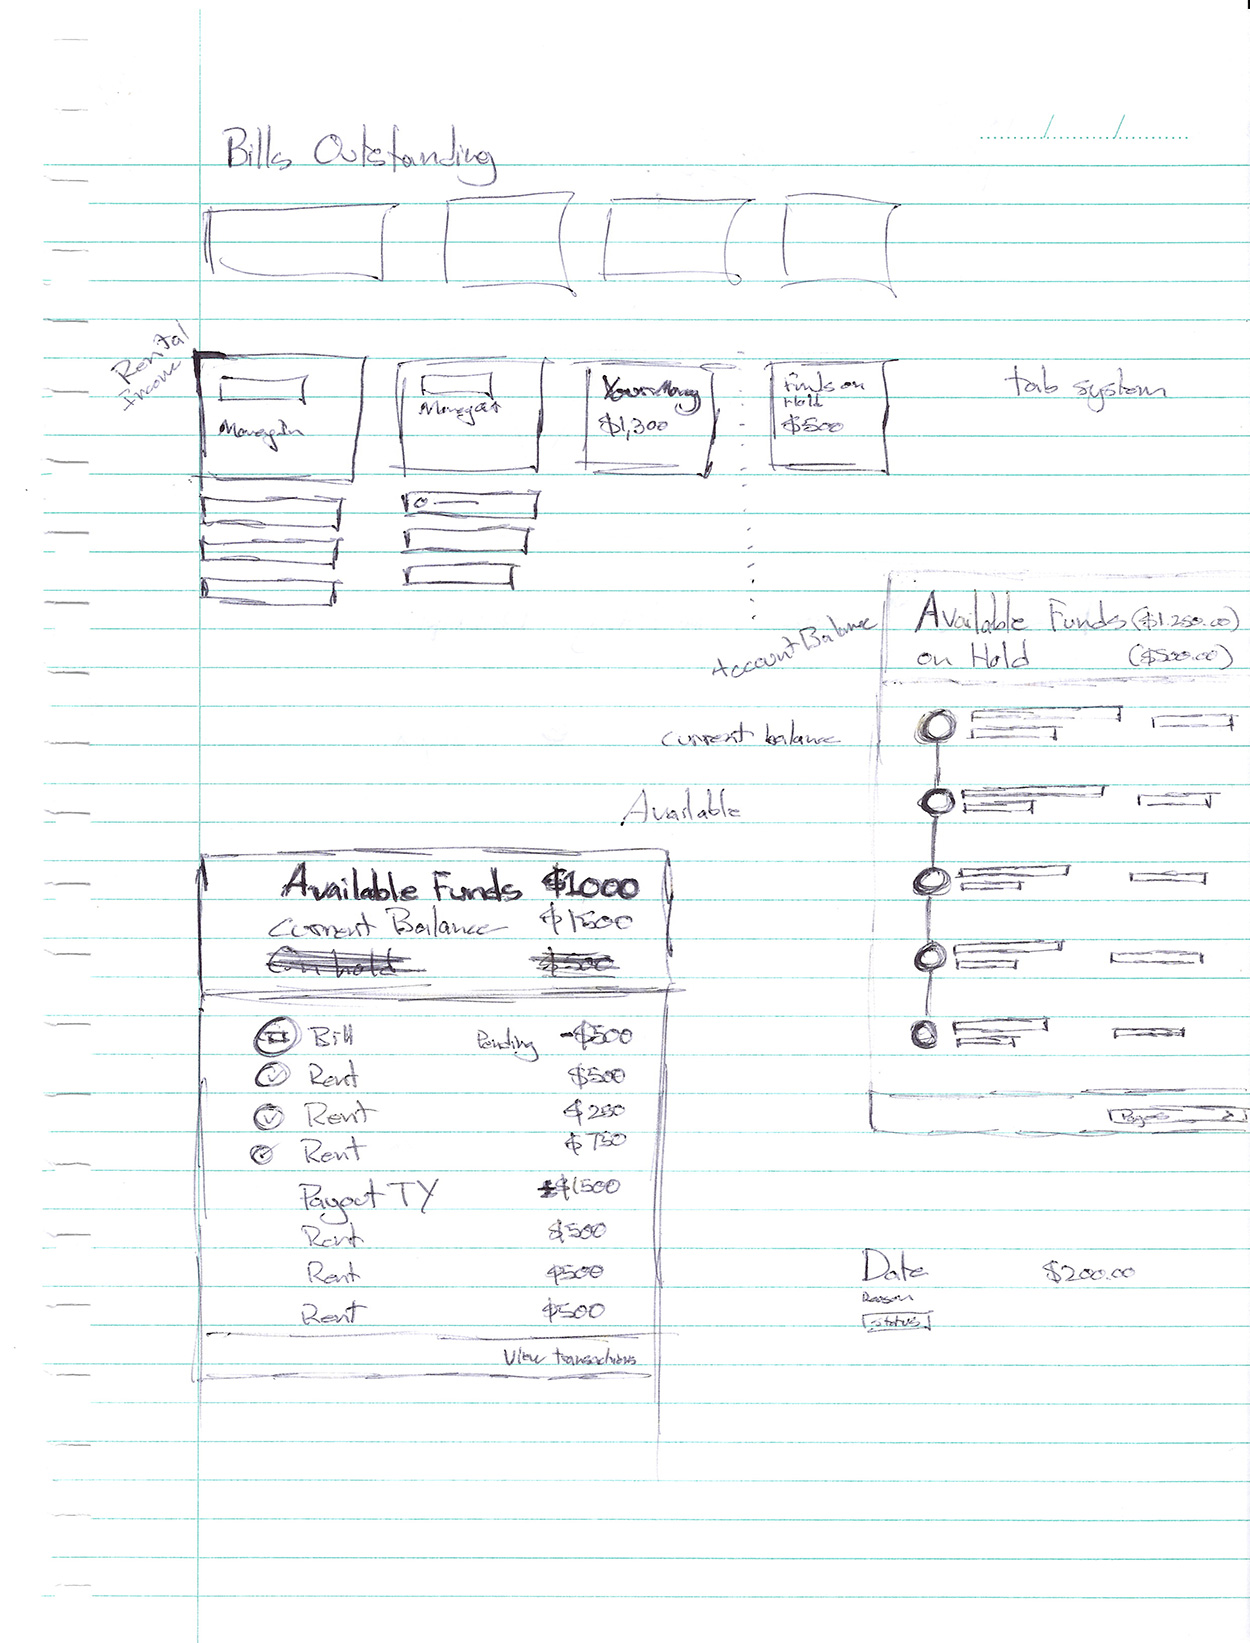 Bills Outstanding
Rental
Income
Money In
Money Out
Your Money
$1,300
Funds on
Hold
$500
tab system
Account Balance
Available Funds ($1.250.00)
on Hold ($500.00)
current balance
Available
Available Funds $1000
Current Balance $1500
On hold $500
Bill Pending -$500
Rent $500
Rent $250
Rent $750
Payout TY $1500
Rent $500
Rent $500
Rent $500
View transactions
Date $200.00
Reason
Status